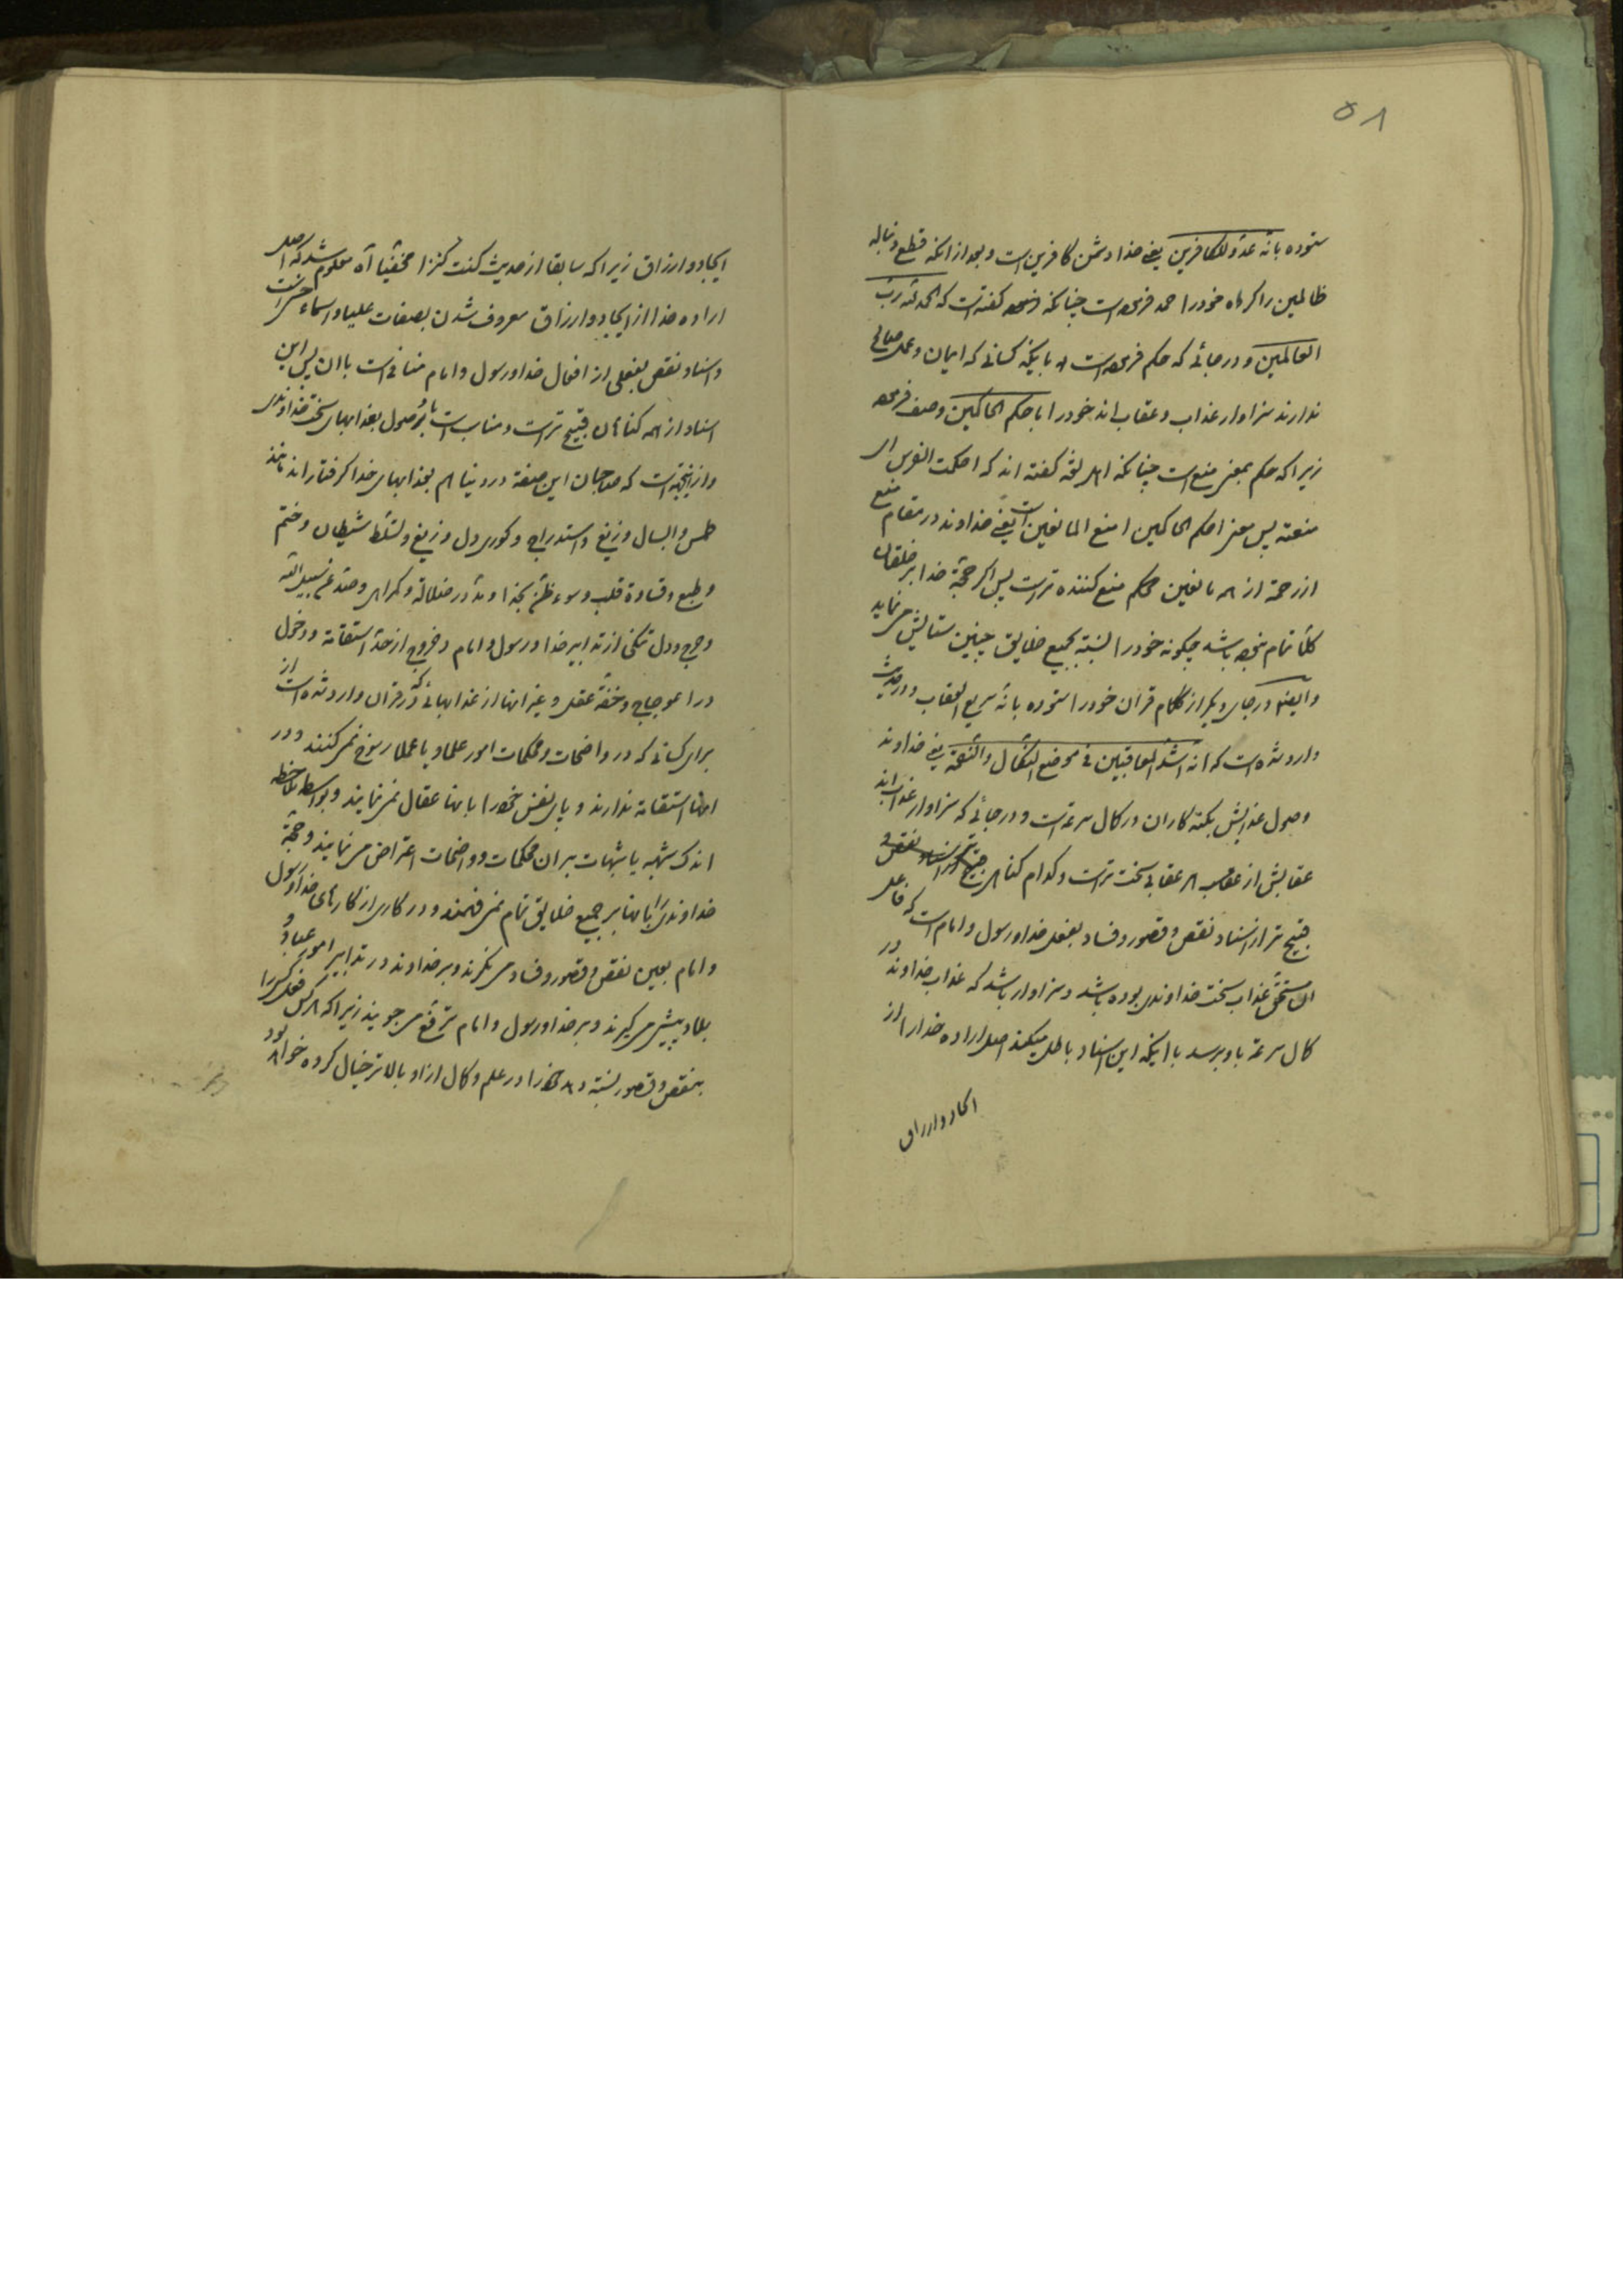 ۵۸
ستوده بانّه عدوّ للکافرین یعنی خدا دشمن کافرین است و بعد از انکه قطع دنباله
ظالمین را کرده خود را حمد فرموده است چنانکه فرموده گفته است که الحمد لله ربّ
العالمین و در جائی که حکم فرموده است باینکه کسانی که ایمان و عمل صالح
ندارند سزاوار عذاب و عقاب اند خود را باحکم الحاکمین وصف فرموده
زیرا که حکم بمعنی منع است چنانکه اهل لغة گفته اند که احکمت الفرس ای
منعته پس معنی احکم الحاکمین امنع المانعین است یعنی خداوند در مقام منع
از رحمة از همه مانعین محکم منع کننده تر است پس اگر حجّة خدا بر خلقان
کلّا تمام نبوده باشد چگونه خود را نسبة بجمیع خلایق چنین ستایش می نماید
وایضا در جای دیگر از کلام قران خود را ستوده بانّه سریع العقاب و در حدیث
وارد شده است که انه اشدّ المعاقبین فی موضع النکال والنقمة یعنی خداوند
وصول عذابش بگنه کاران در کمال سرعة است و در جائی که سزاوار عذاب اند
عقابش از عقاب هر عقابی سخت تر است و کدام گناه
قبیح تر از اسناد نقص و قصور و فساد بفعل خدا و رسول و امام است که فاعل
ان مستحق عذاب سخت خداوندی بوده باشد و سزاوار باشد که عذاب خداوند در
کمال سرعة باو برسد با اینکه این اسناد باطل میکند اصل اراده خدا را از
ایجاد و ارزاق
ایجاد و ارزاق زیرا که سابقا از حدیث کنت کنزا مخفیّا آه معلوم شد که اصل
اراده خدا از ایجاد و ارزاق معروف شدن بصفات علیا و اسماء حسنی است
و اسناد نقص بفعلی از افعال خدا و رسول و امام منافی است با ان پس این
اسناد از همه گناهان قبیح تر است و مناسب است با وصول بعذابهای سخت خداوندی
و از اینجهة است که صاحبان این صفة در دنیا هم بعذابهای خدا گرفتار اند مانند
طمس و ابسال و زیغ و استدراج و کوری دل و زیغ و تسلّط شیطان و ختم
و طبع و قساوة قلب و سوء ظن بخداوند و در ضلالة و گمراهی و صدّ عن سبیل الله
و حرج و دل تنگی از تدابیر خدا و رسول و امام و خروج از حدّ استقامة و دخول
در اعوجاج و خفّة عقل و غیر اینها از عذابهائی که در قران وارد شده است از
برای کسانی که در واضحات و محکمات امور علما و یا عملا رسوخ نمی کنند و در
انها استقامة ندارند و پای نفس خود را بانها عقال نمی نمایند و بواسطه ملاحظه
اندک شبهه یا شبهات بر ان محکمات و واضحات اعتراض می نمایند و حجّة
خداوندی را بانها بر جمیع خلایق تمام نمی فهمند و در کاری از کارهای خدا و رسول
و امام بعین نقص و قصور و فساد می نگرند و بر خداوند در تدابیر امور عباد و
بلاد پیشی می گیرند و بر خدا و رسول و امام ترفّع می جویند زیرا که هر کس فعل کسی را
بنقص و قصور نسبة دهد خود را در علم و کمال از او بالاتر خیال کرده خواهد بود